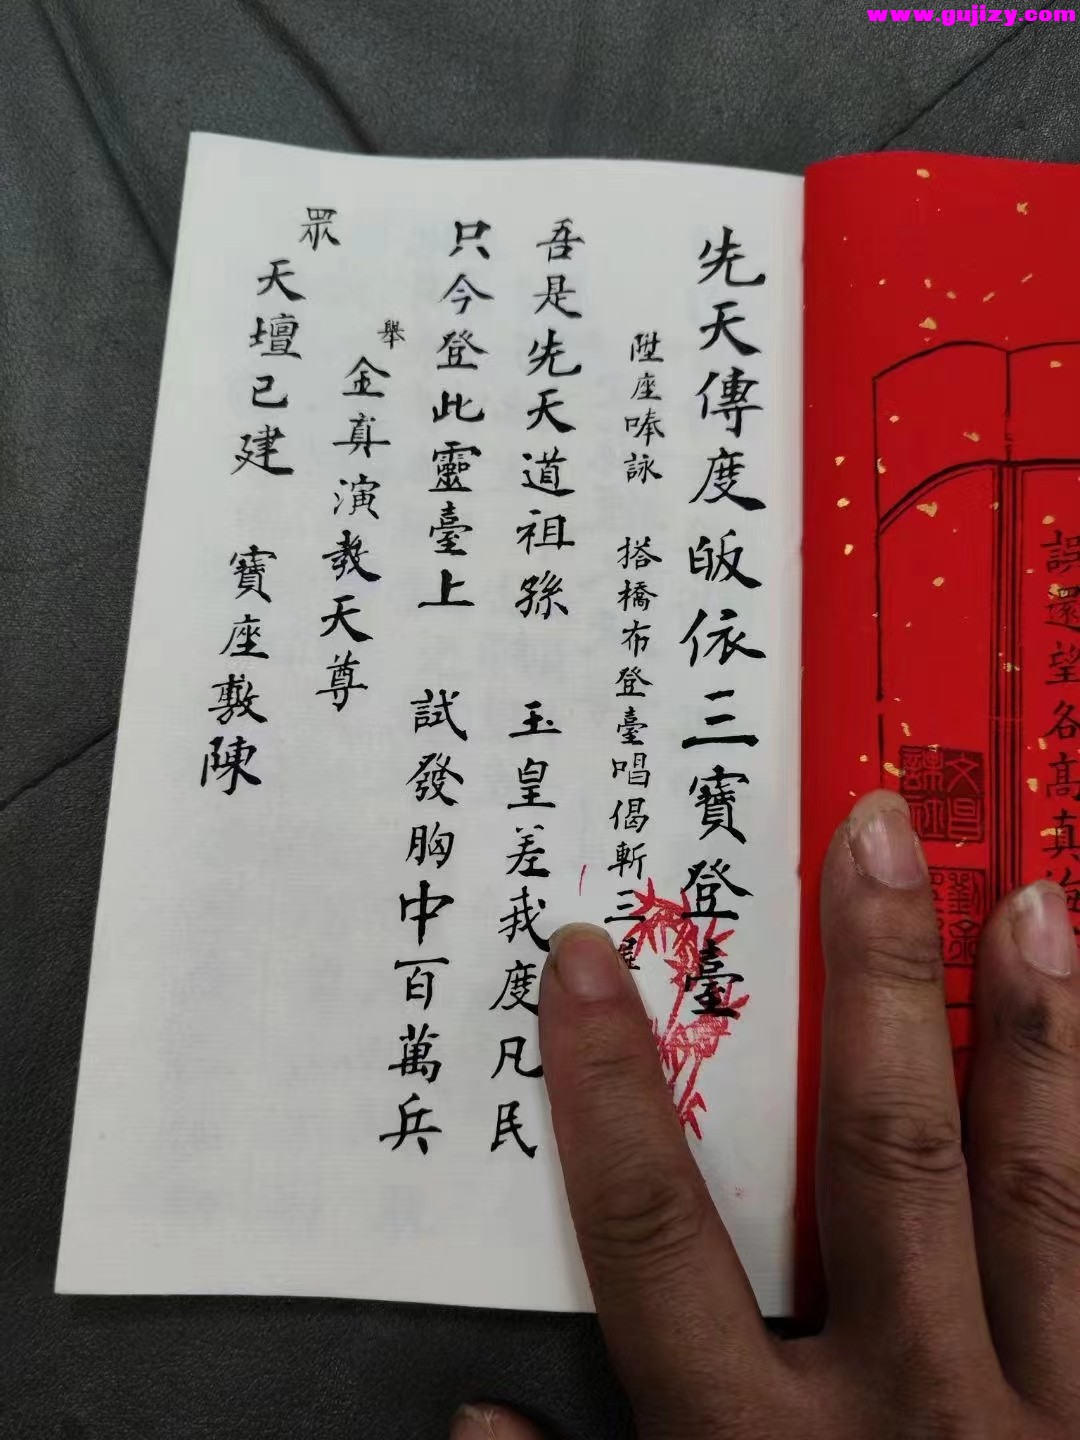 www.gujizy.com
誤還望各高真海
先天傳度皈依三寶登臺
陞座唪詠 搭橋布登臺唱偈斬三屍
吾是先天道祖孫 玉皇差我度凡民
只今登此靈臺上 試發胸中百萬兵
舉 金真演教天尊
眾 天壇已建 寶座敷陳